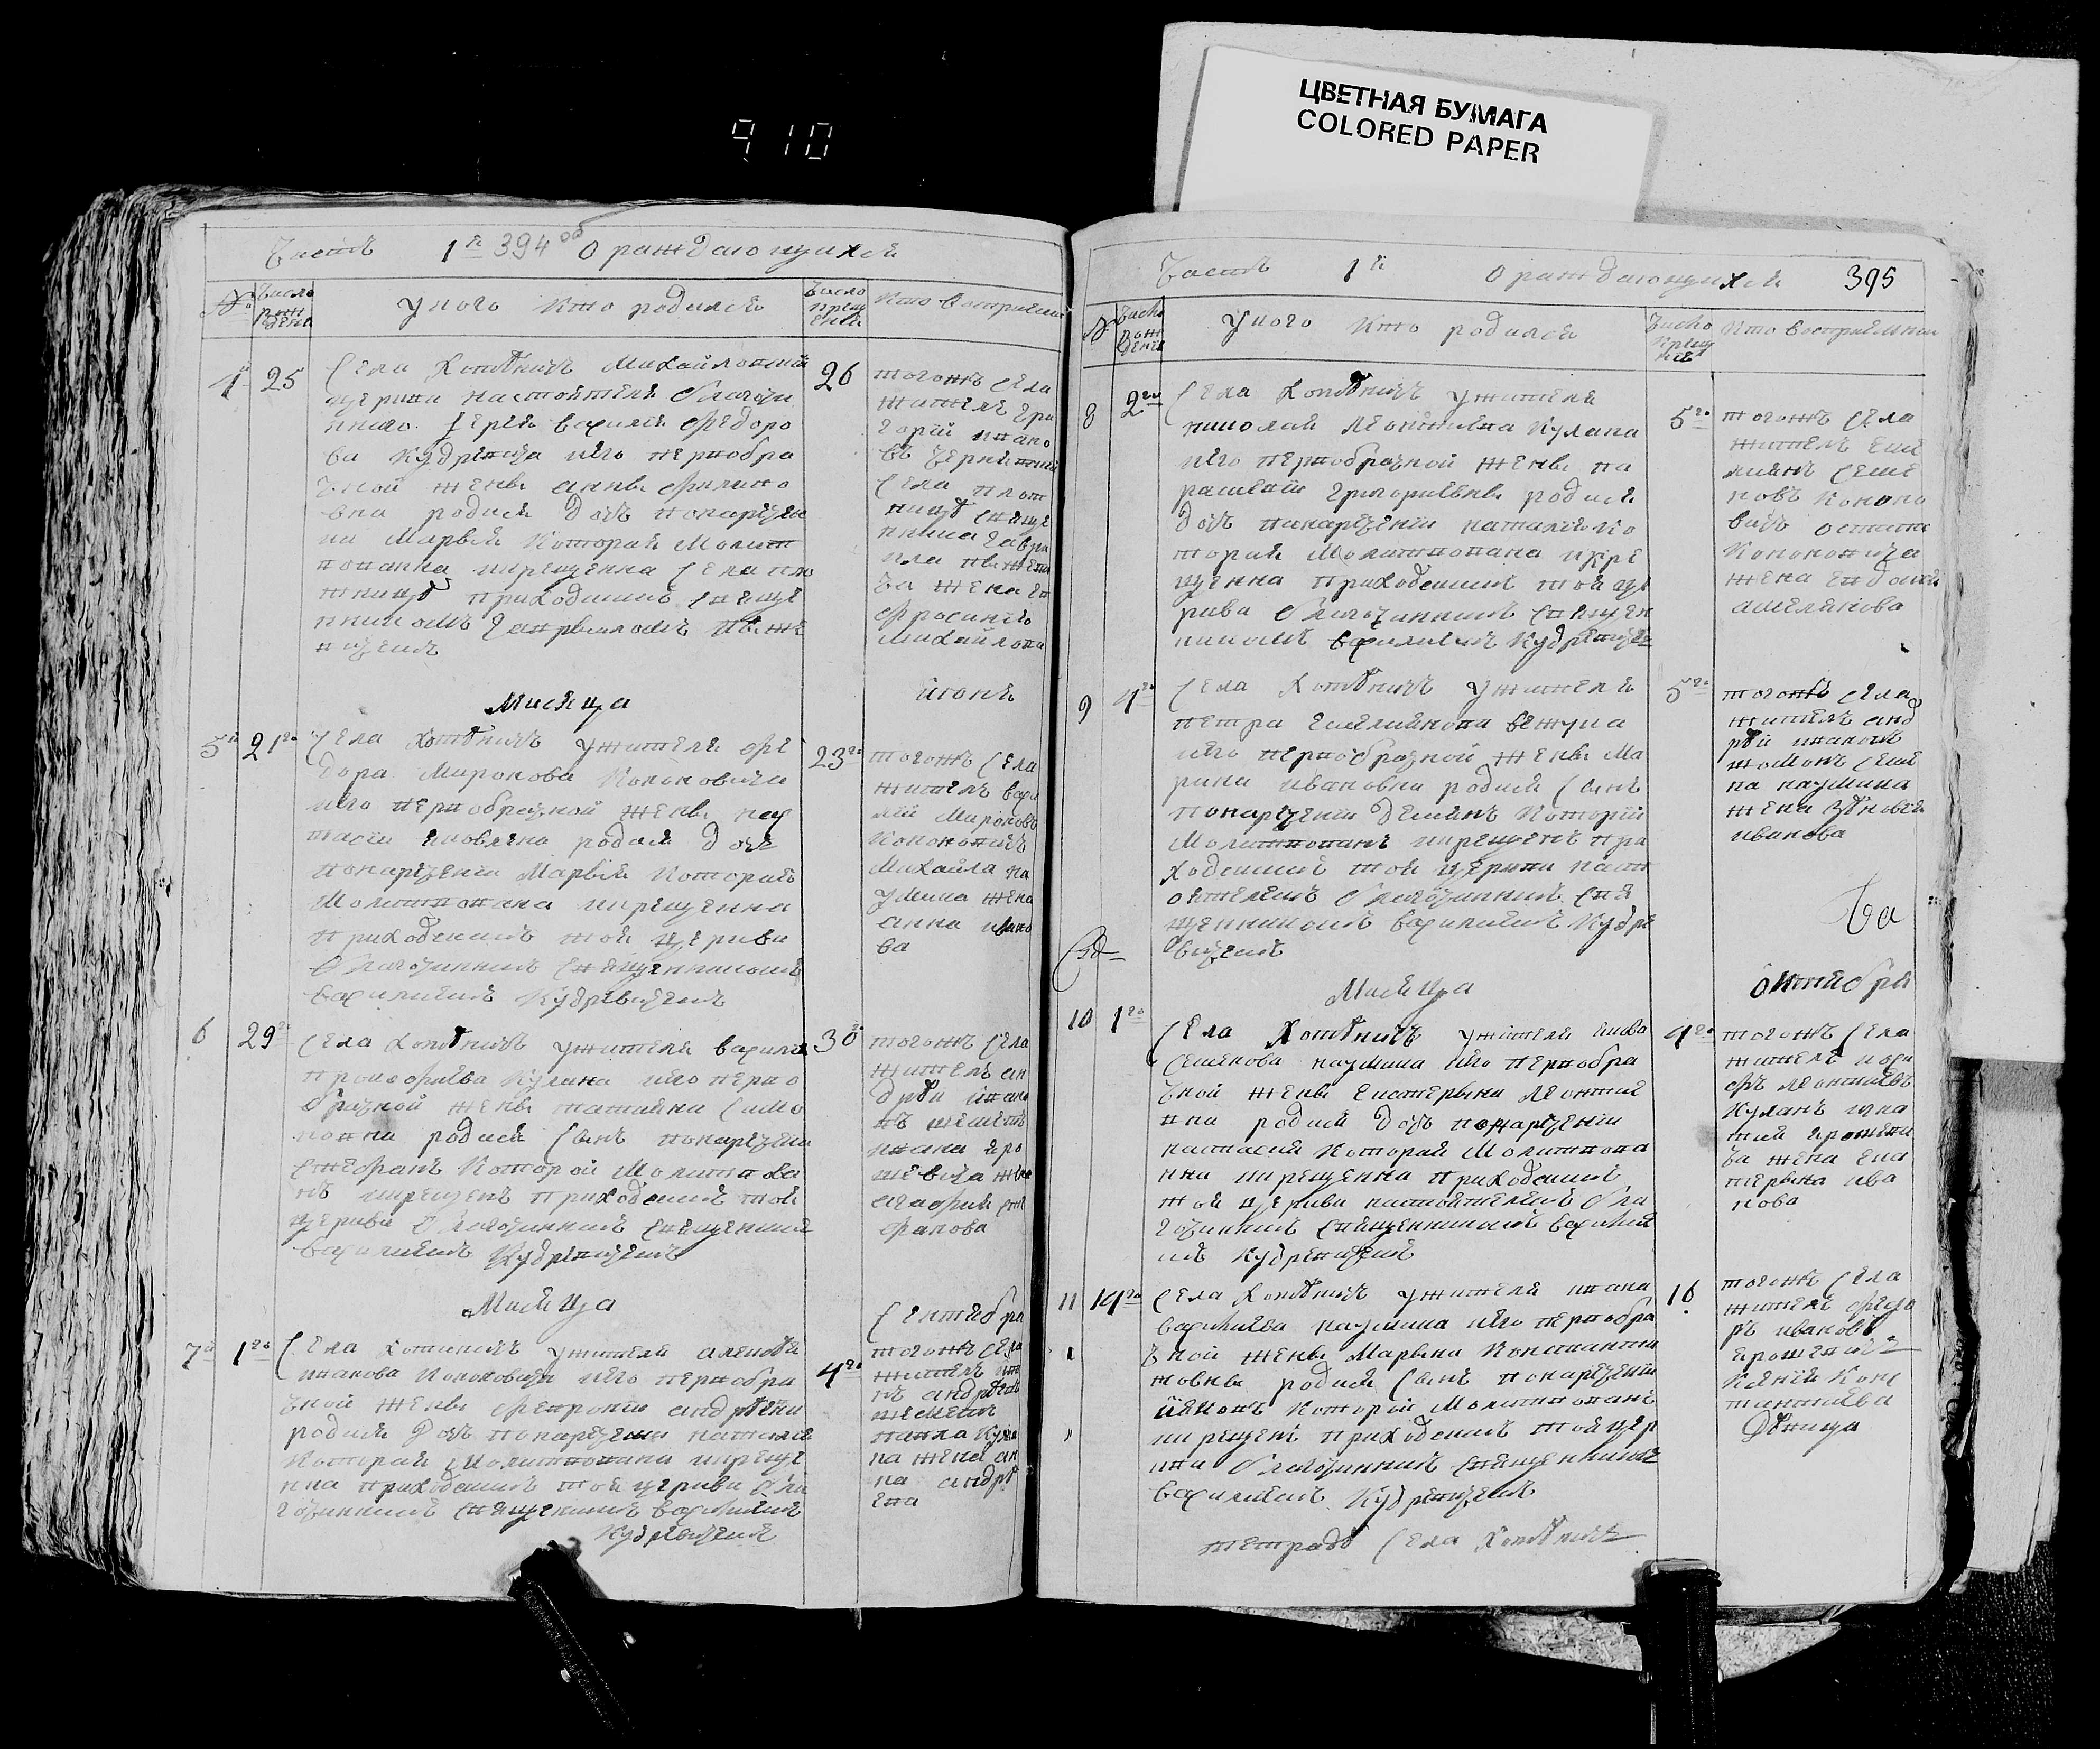 ЦВЕТНАЯ БУМАГА
COLORED PAPER
910
Часть 1я 394 О раждающихся
№ Число рождения У кого кто родился Число крещения Кто восприемни
4 25
Села Хотѣничъ Михайловской
церкви настоятеля благочи
ннаго Іерея Василія Федоро
ва Кудревича иего первобра
чной жены анны Филипо
вна родися дочь понаречен
ия Марѳія Которая Молит
вованна икрещенна Села пло
тницъ приходскимъ Свяще
нникомъ
26
тогожъ Села
житель Гри
горій ивано
въ
Села плот
ницъ Свяще
нника Гаври
ла
жена Ев
фросинія
Михайлова
Мисяца Июнь
5 21го
Села Хотѣничъ ужителя Фе
дора Миронова Кононовича
иего первобрачной жены нас
тасіи яковлевна родися дочь
понареченіи Марѳія Которая
Молитвована икрещенна
приходскимъ той церкви
благочиннимъ Священникомъ
Василиемъ Кудревичемъ
23го
тогожъ Села
житель Васи
лій Мироновъ
Кононовичъ
Михайла на
умика жена
анна ивано
ва
6 29
Села Хотѣничъ ужителя Василія
прокофиева Кулака иего перво
брачной жены татьяни Симо
новна родися Синъ понаречении
Стефанъ Которой Молитвова
нъ икрещенъ приходскимъ той
церкви благочиннимъ Священникомъ
Василиемъ Кудревичемъ
30
тогожъ Села
житель ан
дрѣй ивано
въ
ивана яро
шевича жена
агафия сте
фанова
Мисяца Сентебра
7 1го
Села Хотиничъ ужителя алексѣя
иванова Кононовича иего первобра
чной жены Февронии андрѣевни
родися дочь понаречении наталия
Которая Молитвована икреще
нна приходскимъ той церкви бла
гочиннимъ Священникомъ Василиемъ
Кудревичемъ
4го
тогожъ Села
житель ива
нъ андрѣевъ
павла Кула
ка жена ан
на андрѣ
ева
Часть 1я О раждающихся 395
№ Число рождения У кого кто родился Число крещения Кто восприемники
8 2го
Села Хотѣничъ ужителя
николая леонтиева Кулака
иего первобрачной жены па
раскевіи григориевны родися
дочь понареченіи наталия Ко
торая Молитвована икре
щенна приходскимъ той це
ркви благочиннимъ Священ
никомъ Василиемъ Кудревиче
5го
тогожъ Села
житель Еме
лиянъ Семе
новъ Конано
вичъ остапа
Кононовича
жена Евдокия
амелянова
9 4го
Села Хотѣничъ ужителя
петра Емелиянова
иего первобрачной жены Ма
рини ивановни родися Синъ
понареченіи демянъ Которій
Молитвованъ икрещенъ при
ходскимъ той церкви наст
оятелемъ благочиннимъ Свя
щенникомъ Василиемъ Кудре
вичемъ
5го
тогожъ Села
житель анд
рѣй ивановъ
на наумика
жена Зѣновія
иванова
Мисяца октября
10 1го
Села Хотѣничъ ужителя якова
Семенова наумика иего первобра
чной жены Екатерыни леонтие
вни родися дочь понареченіи
настасия Которая Молитвова
нна икрещенна приходскимъ
той церкви настоятелемъ бла
гочиннимъ Священникомъ Василие
мъ Кудревичемъ
4го
тогожъ Села
житель иоси
фъ леонтиевъ
Кулакъ игна
тия ярошеви
ча жена Ека
терына ива
нова
11 14го
Села Хотѣничъ ужителя ивана
Василиева наумика иего первобра
чной жены Марьяни Константи
новны родися Синъ понаречении
Которой Молитвованъ
икрещенъ приходскимъ той цер
кви благочиннимъ Священникомъ
Василиемъ Кудревичемъ
16
тогожъ Села
житель федо
ръ ивановъ
ярошевичъ
Ксенія Конс
тантиева
дѣвица
тетрадь Села Хотѣничъ